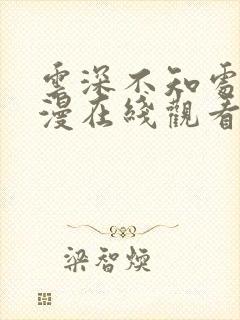 雲深不知處
漫在綫觀看
梁智煥